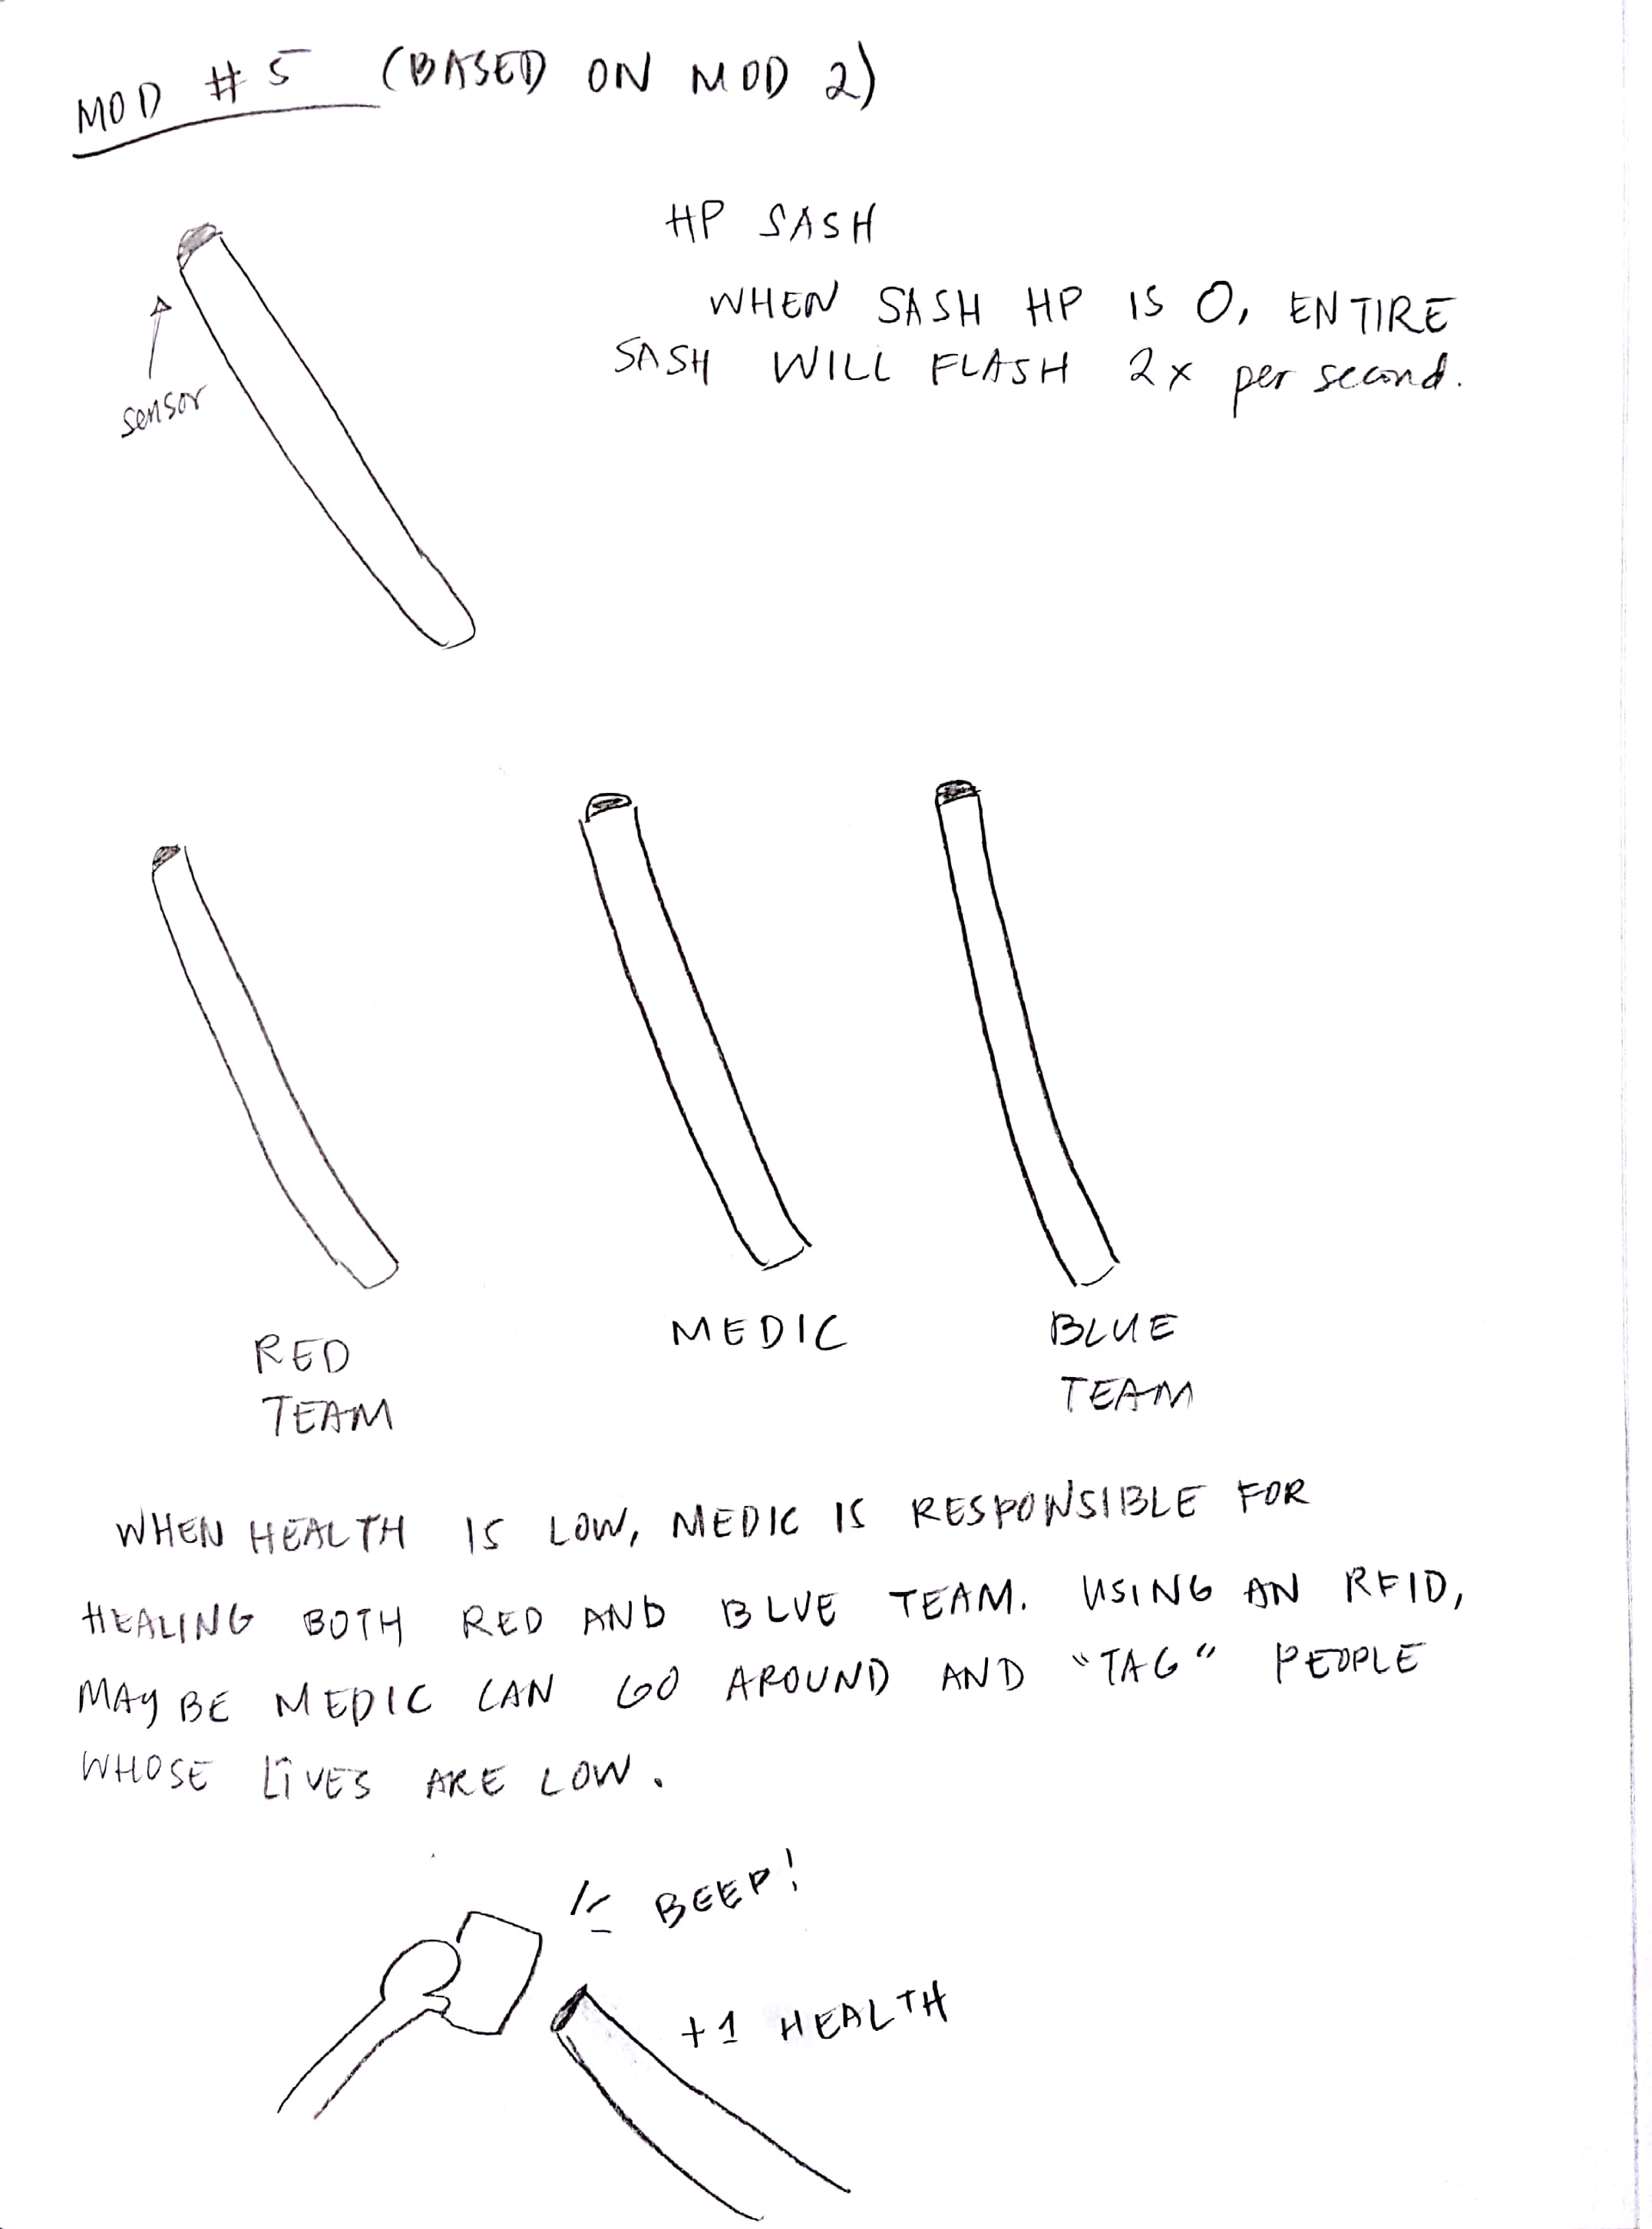 MOD #5 (BASED ON MOD 2)
HP SASH
WHEN SASH HP IS 0, ENTIRE
SASH WILL FLASH 2x per second.
sensor
RED
TEAM
MEDIC
BLUE
TEAM
WHEN HEALTH IS LOW, MEDIC IS RESPONSIBLE FOR
HEALING BOTH RED AND BLUE TEAM. USING AN RFID,
MAYBE MEDIC CAN GO AROUND AND "TAG" PEOPLE
WHOSE LIVES ARE LOW.
BEEP!
+1 HEALTH